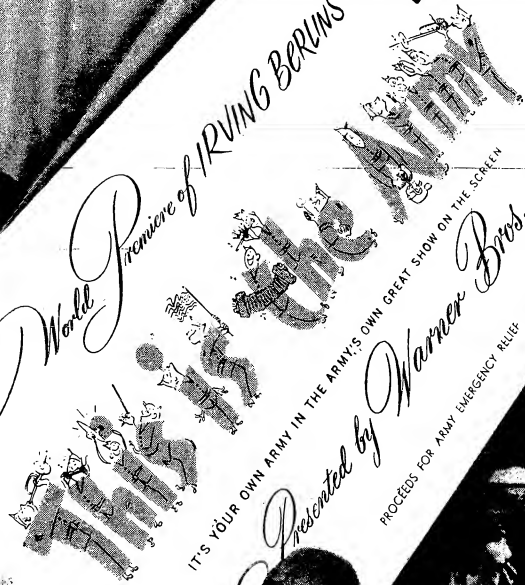 World Premiere of IRVING BERLINS
This is the Army
IT'S YOUR OWN ARMY IN THE ARMY'S OWN GREAT SHOW ON THE SCREEN
Presented by Warner Bros
PROCEEDS FOR ARMY EMERGENCY RELIEF